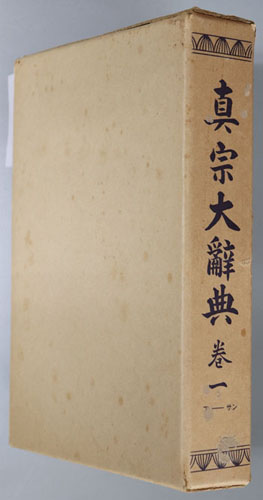 真宗大辭典 巻一
サン